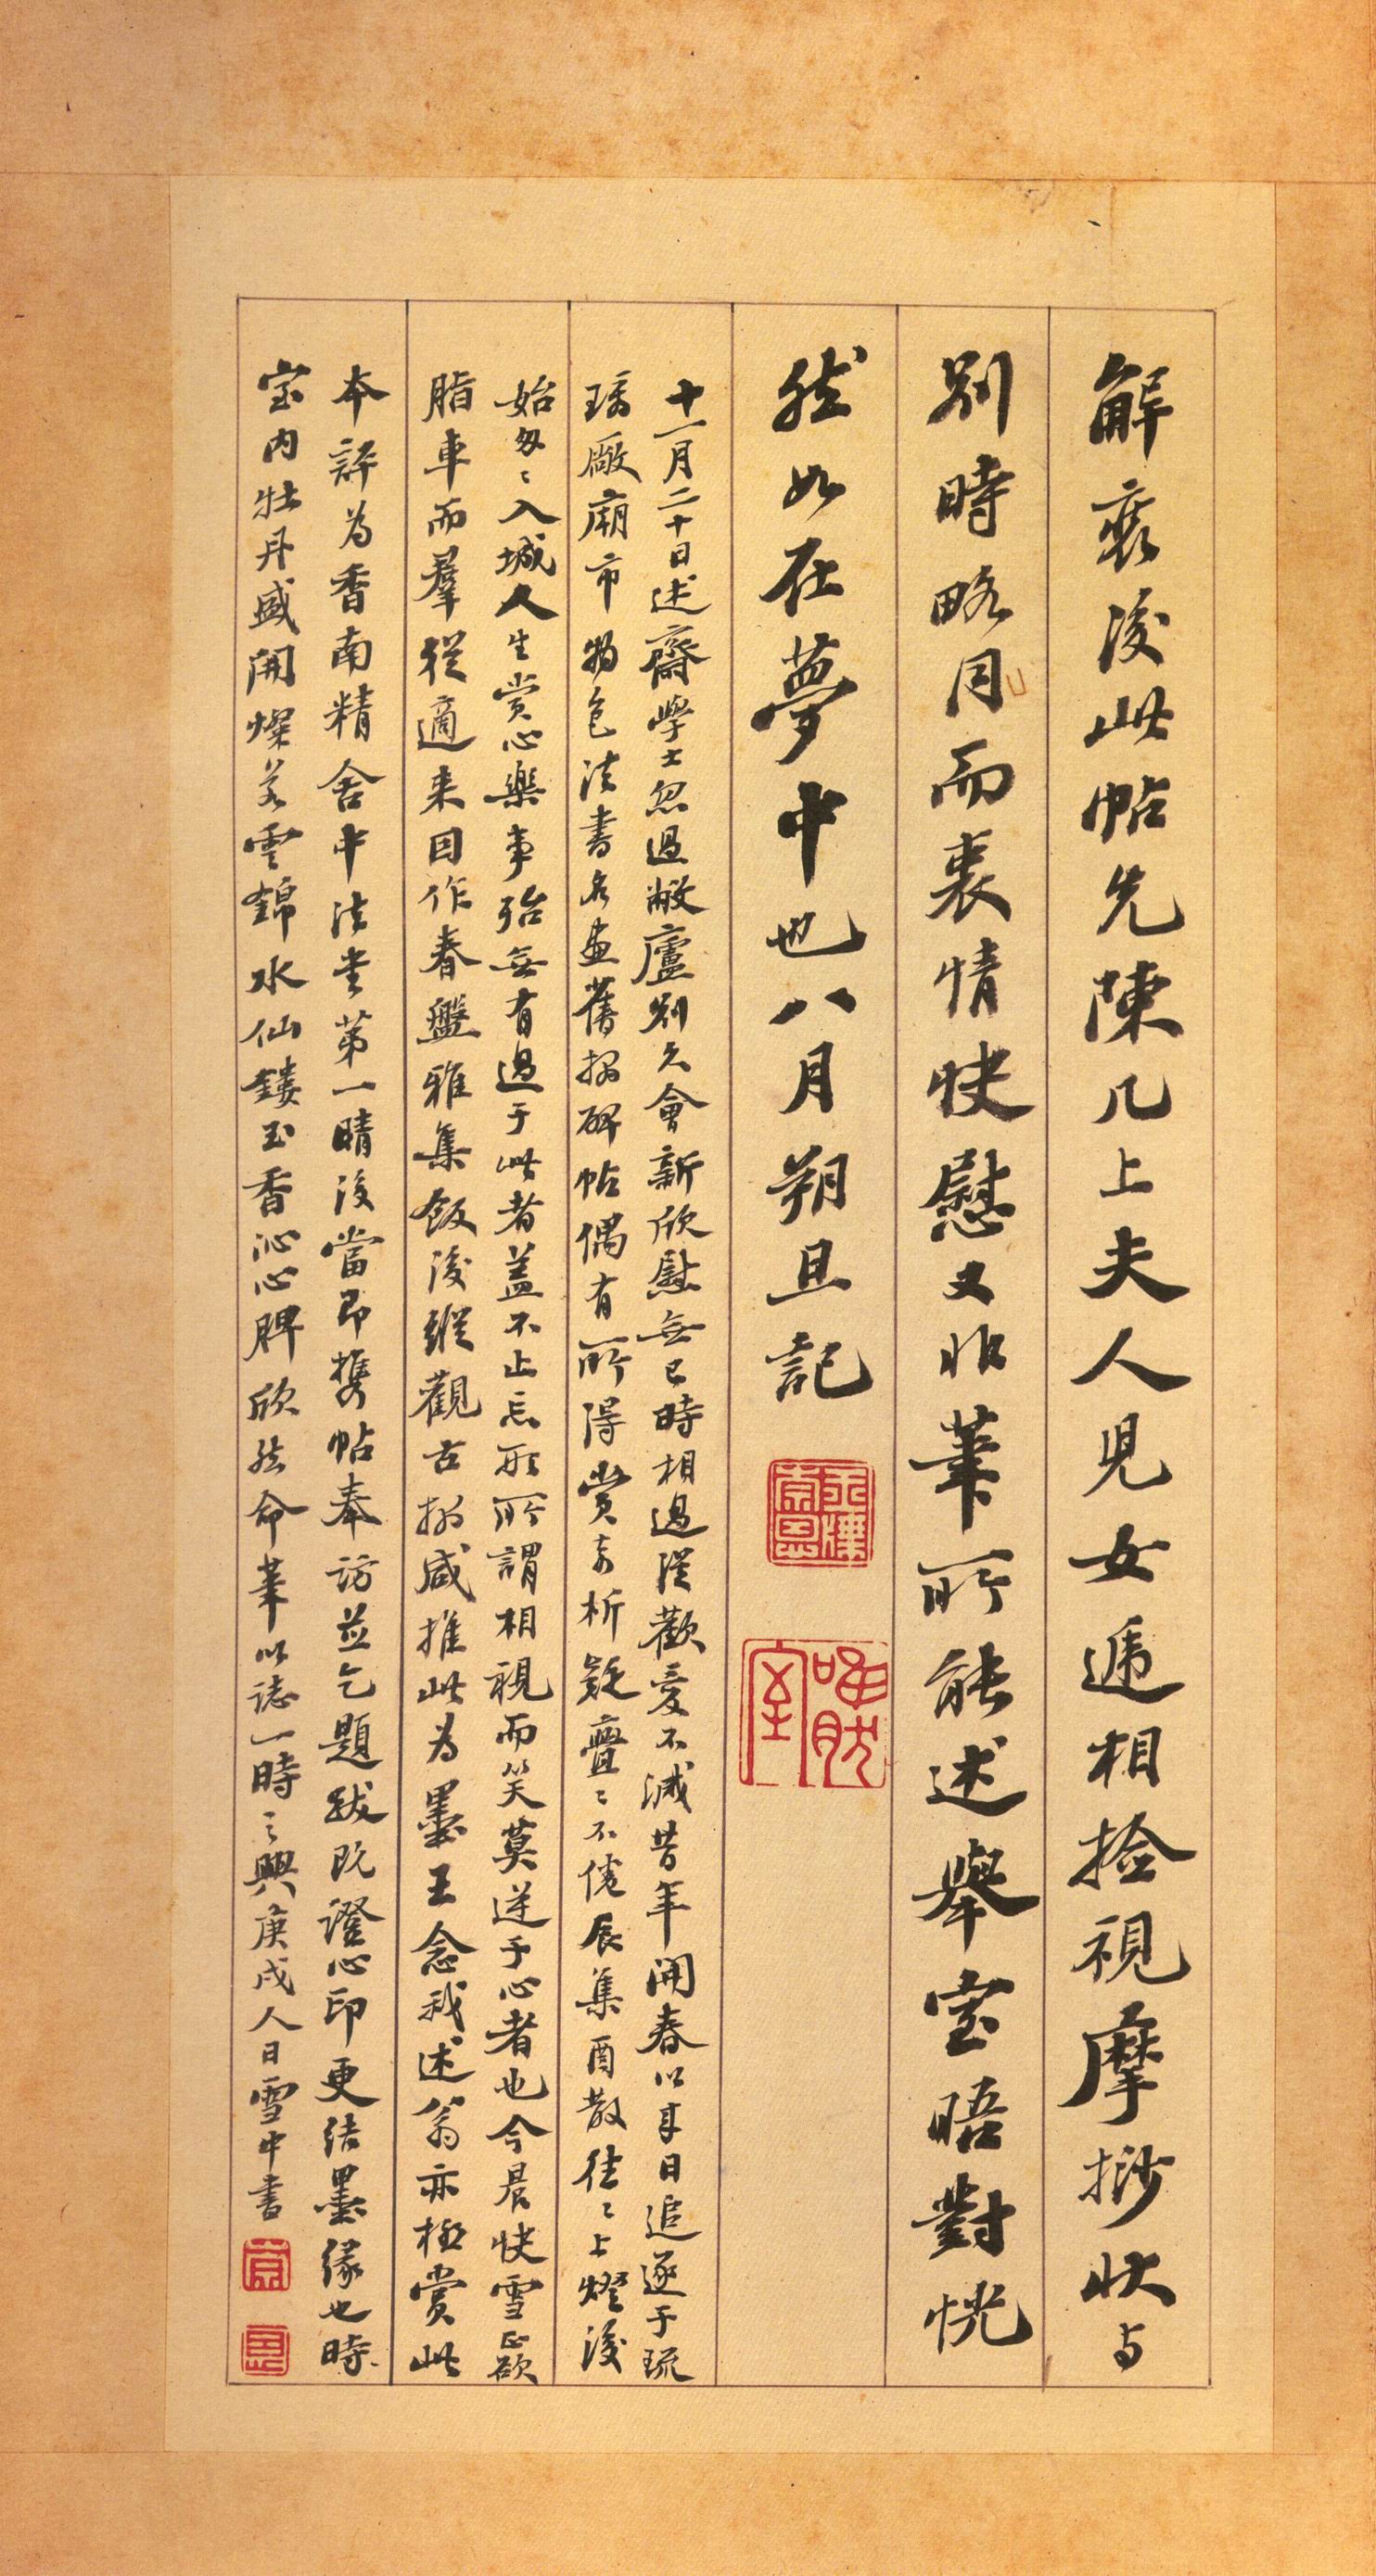 解裝後此帖先陳几上夫人兒女遞相捡視摩挱狀与
別時略同而衷情快慰又非筆所能述舉室晤對恍
然如在夢中也八月朔旦記
十一月二十日述齋學士忽過敝廬別久會新欣慰無已時相過從歡愛不減昔年開春以来日追逐于琉
璃廠廟市物色法書名畫舊搨碑帖偶有所得賞奇析疑亹〻不倦辰集酉散往〻上燈後
始匆〻入城人生賞心樂事殆無有過于此者蓋不止忘形所謂相視而笑莫逆于心者也今晨快雪正欲
脂車而羣從適来因作春盤雅集飯後縱觀古搨咸推此为墨王念我述翁亦極賞此
本評为香南精舍中法書第一晴後當即携帖奉訪並乞題跋既證心印更结墨緣也時
室内牡丹盛開燦若雲錦水仙鏤玉香沁心脾欣然命筆以誌一時之興庚戌人日雪中書
崇
恩